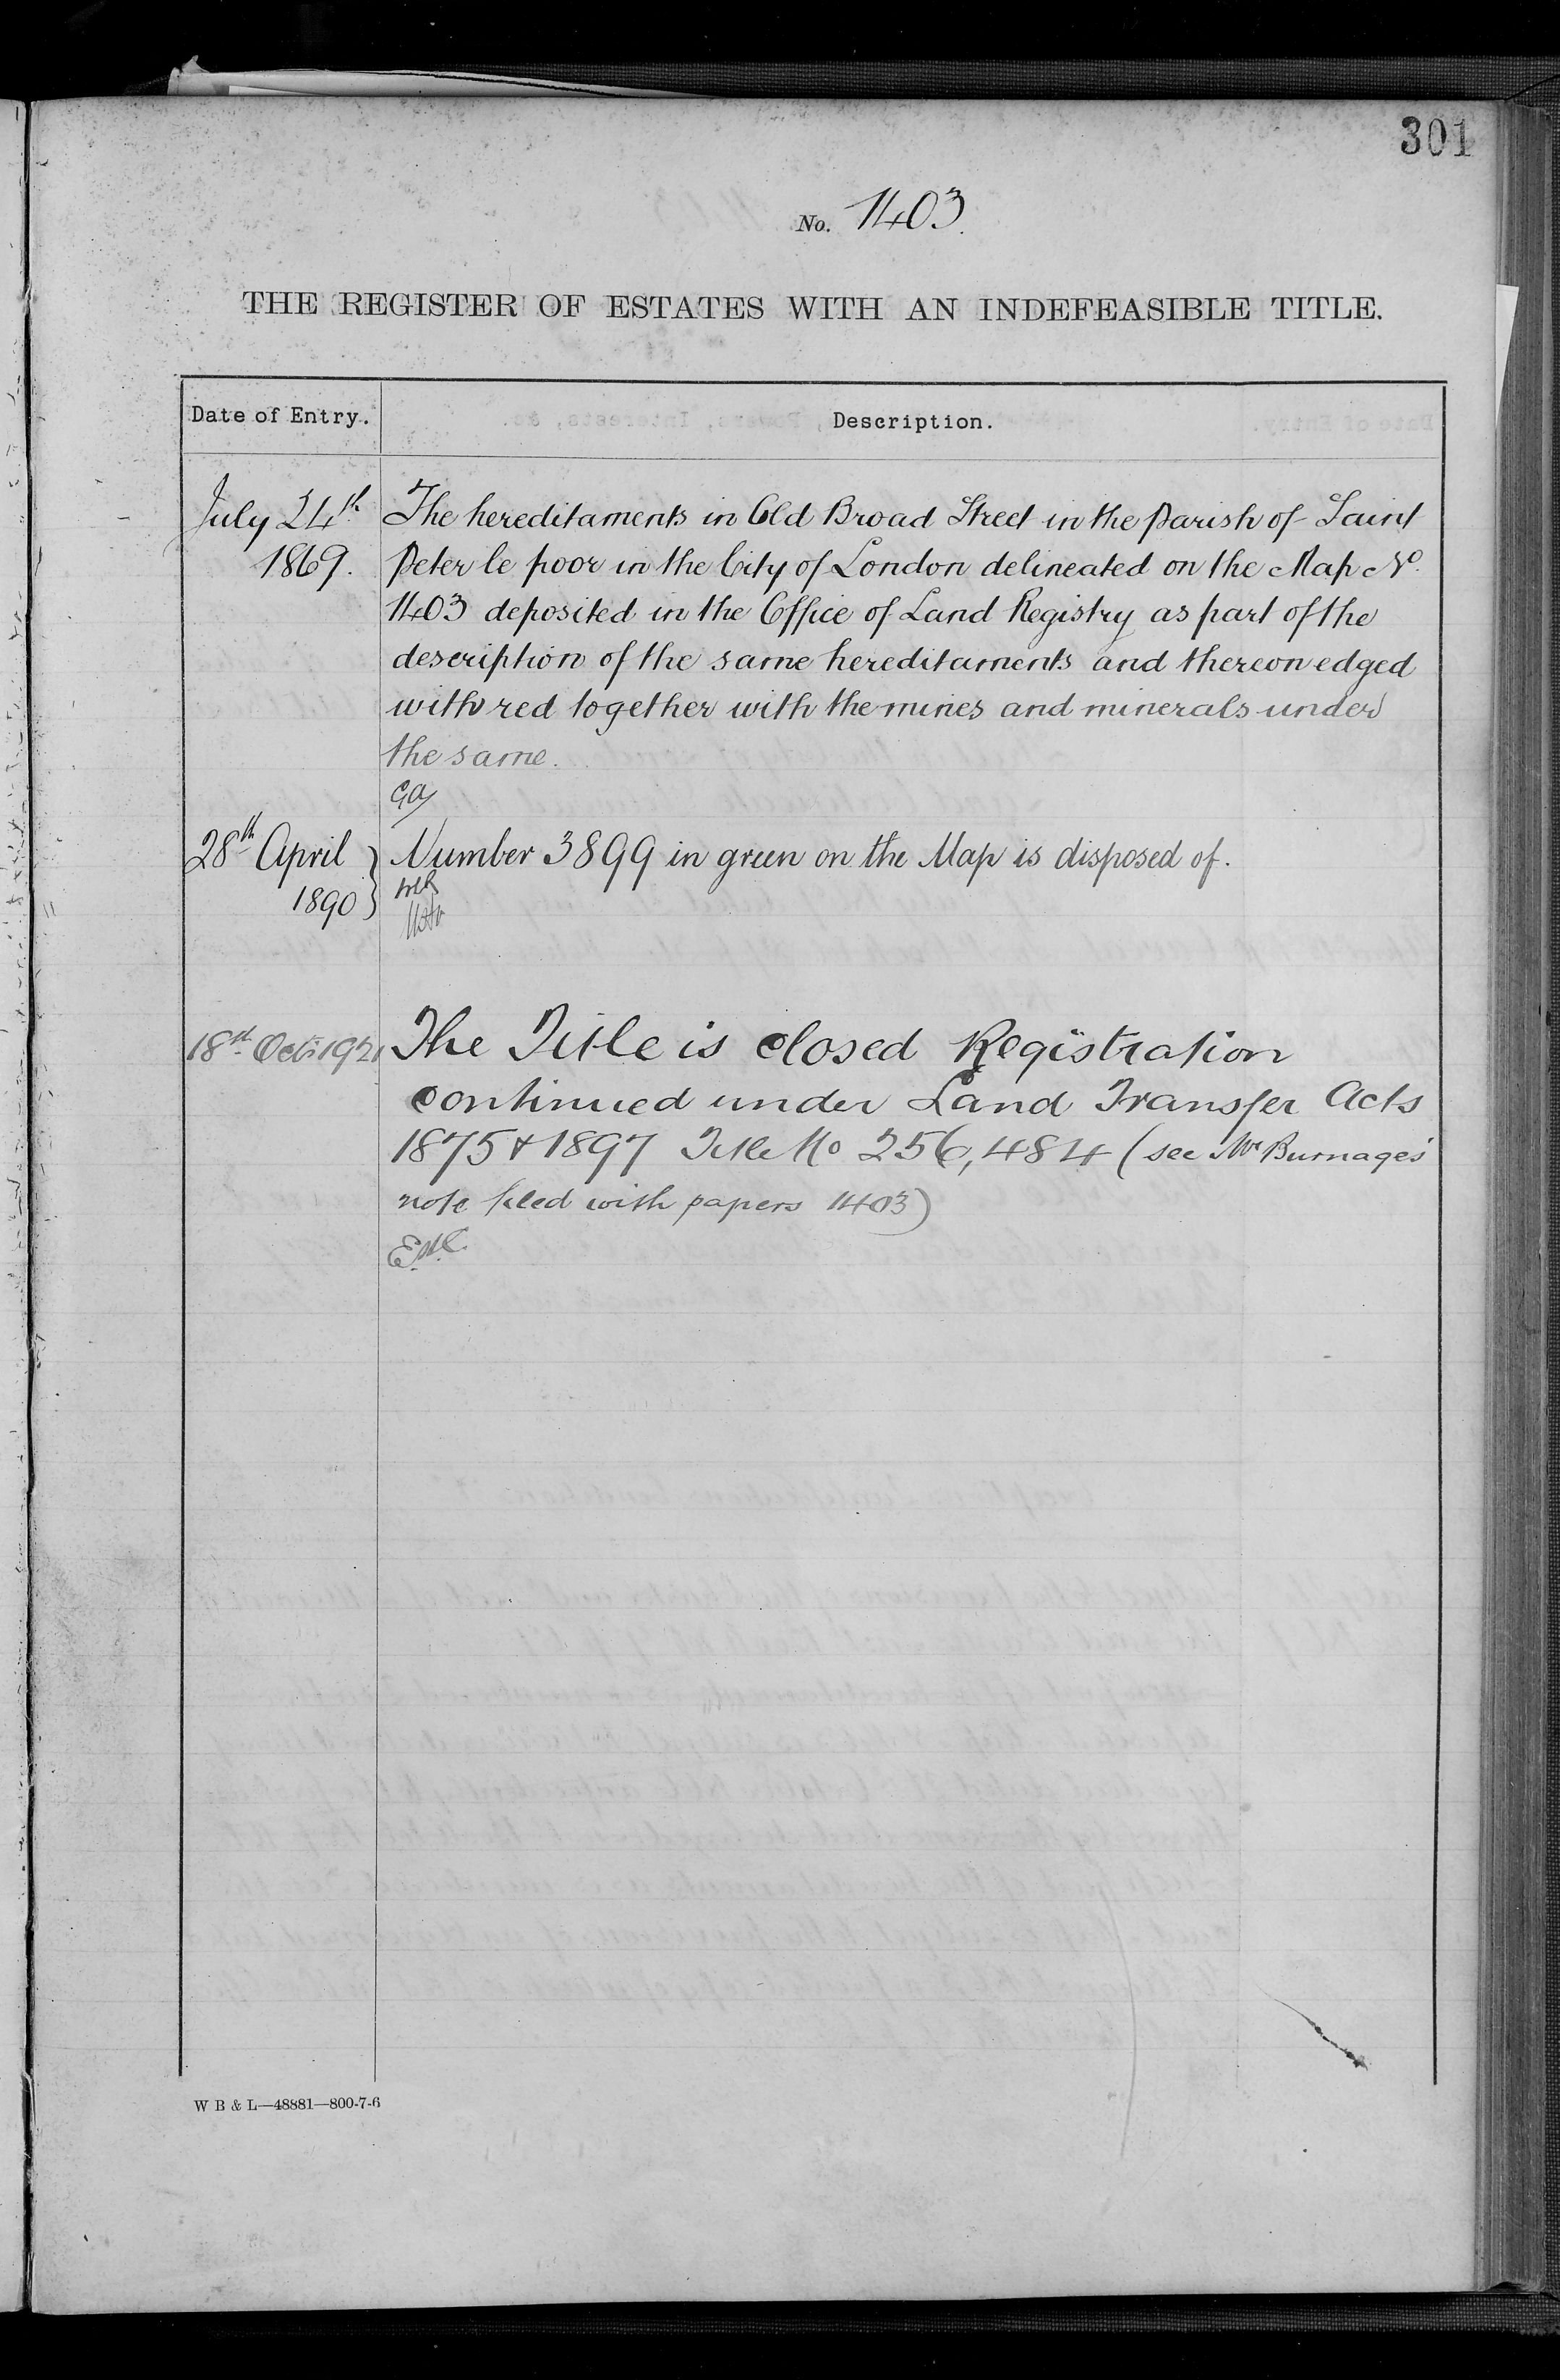 301
No. 1403.
THE REGISTER OF ESTATES WITH AN INDEFEASIBLE TITLE.
Date of Entry. Description.
July 24th The hereditaments in Old Broad Street in the Parish of Saint
1869. Peter le poor in the City of London delineated on the Map No.
1403 deposited in the Office of Land Registry as part of the
description of the same hereditaments and thereon edged
with red together with the mines and minerals under
the same.
28th April Number 3899 in green on the Map is disposed of.
1890
18th Oct: 1921 The Title is closed Registration
continued under Land Transfer Acts
1875 & 1897 Title No 256,484 (see Mr Burnage's
note filed with papers 1403)
W B & L—48881—800-7-6